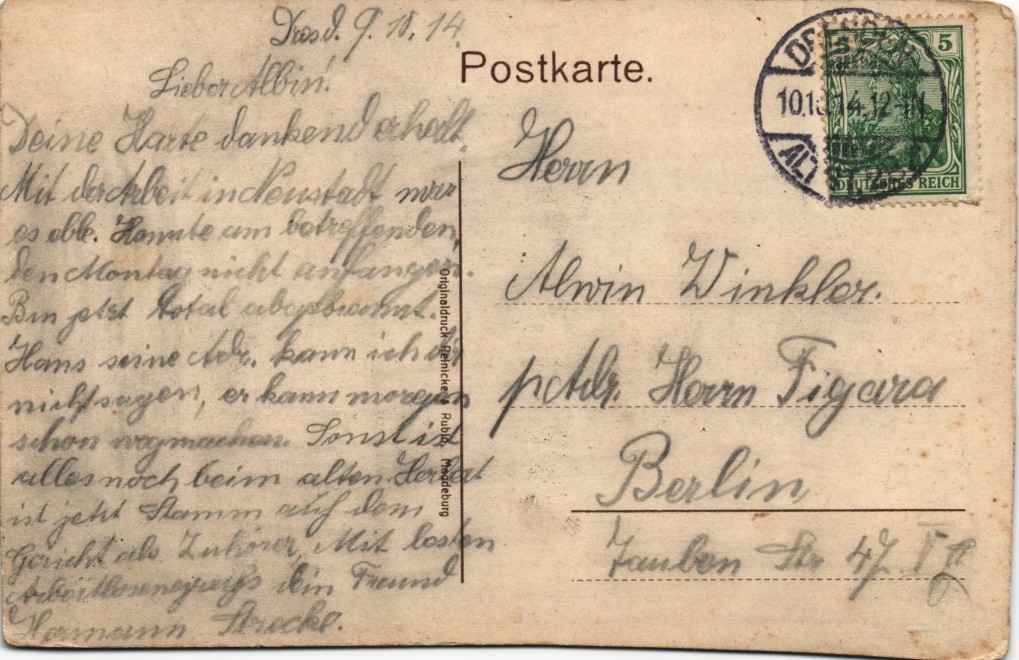 Dresd. 9.10.14.
Lieber Albin!
Deine Karte dankend erhalt.
Mit der Arbeit in Neustadt war
es . Konnte am betreffenden
den Montag nicht anfangen.
Bin jetzt total abgebrannt.
Hans seine Adr. kann ich dir
nicht sagen, er kann morgen
schon wegmachen. Sonst ist
alles noch beim alten. Herbert
ist jetzt Stamm auf dem
Gericht als Zuhörer. Mit besten
dein Freund
Hermann Streckl.
Postkarte.
Herrn
Alwin Winkler.
p. Adr. Herrn Figara
Berlin
Tauben Str 47
Originaldruck Reinicke & Rubin, Magdeburg
5 5
DEUTSCHES REICH
DRESDEN
10.10.14. 12-1N.
ALTST.